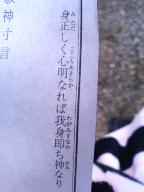 敬神寸言
身正しく心明なれば我身即ち神なり